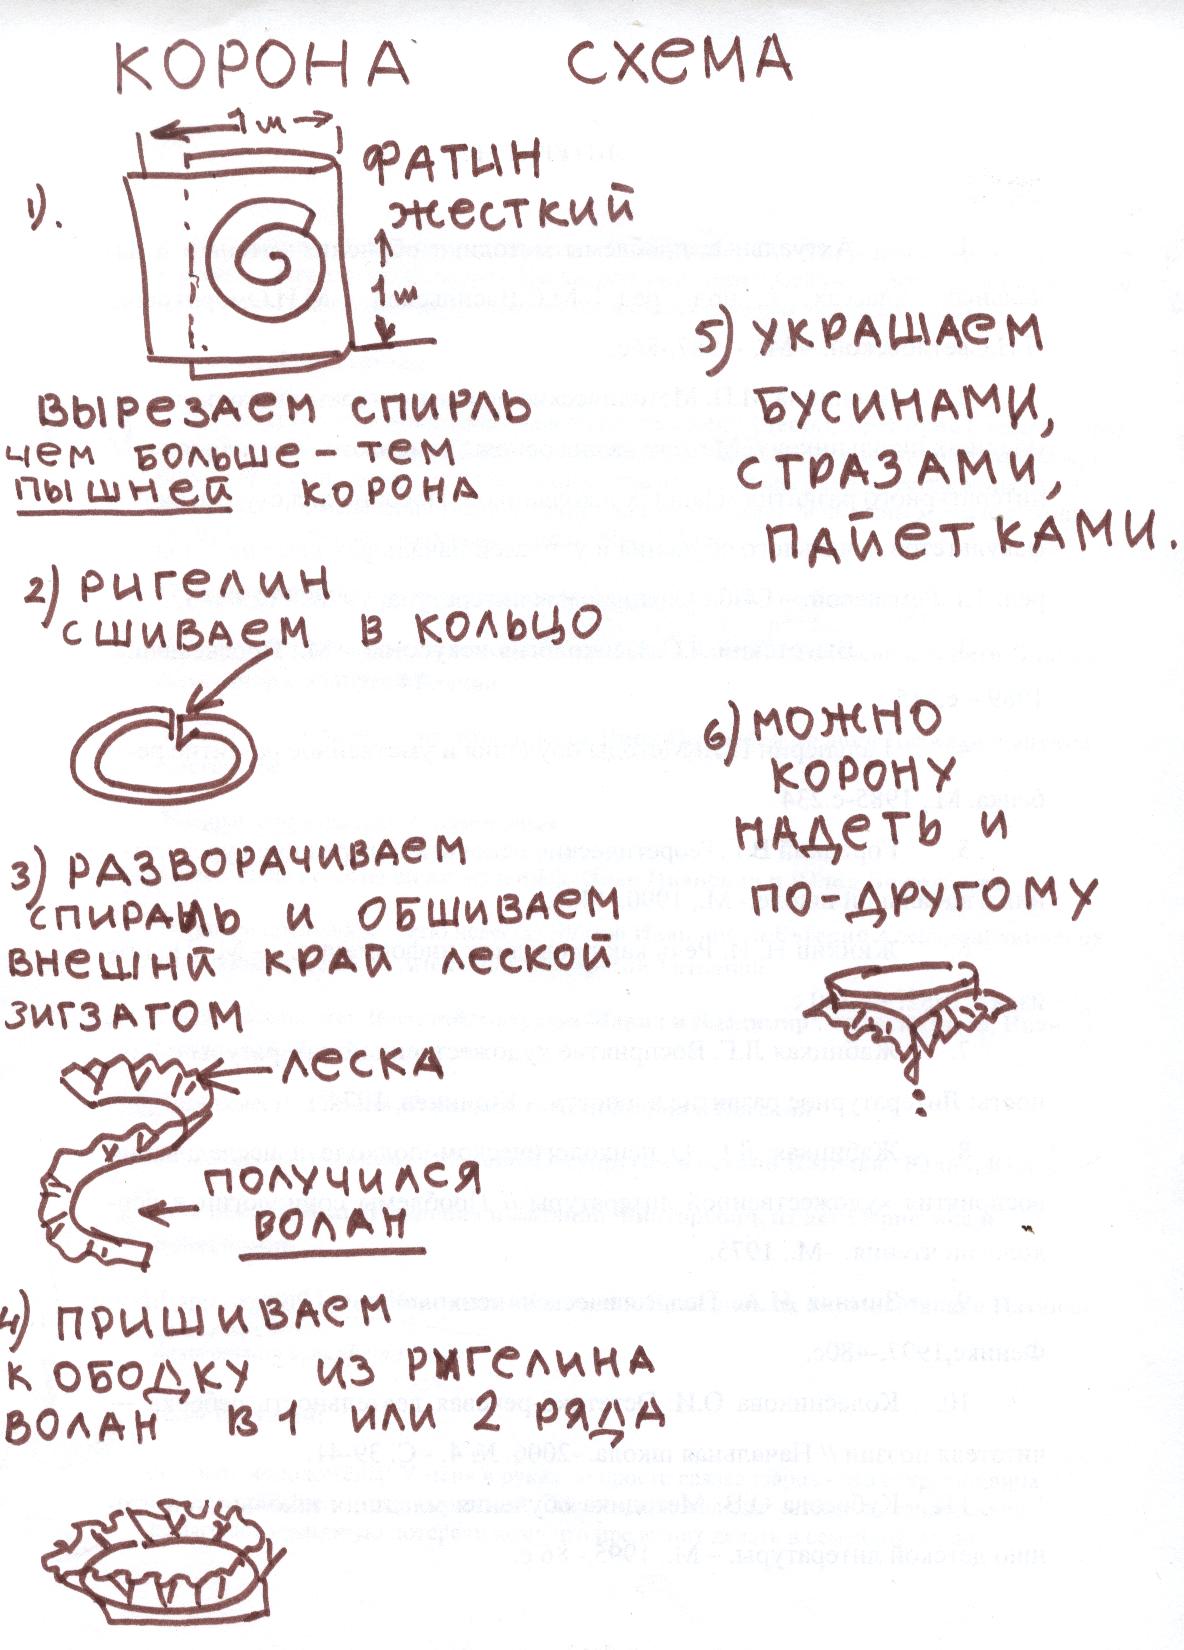 КОРОНА СХЕМА
1 м
ФАТИН
ЖЕСТКИЙ
1).
1 м
ВЫРЕЗАЕМ СПИРЛЬ
ЧЕМ БОЛЬШЕ - ТЕМ
ПЫШНЕЙ КОРОНА
2) РИГЕЛИН
СШИВАЕМ В КОЛЬЦО
3) РАЗВОРАЧИВАЕМ
СПИРАЛЬ И ОБШИВАЕМ
ВНЕШНЙ КРАЙ ЛЕСКОЙ
ЗИГЗАГОМ
ЛЕСКА
ПОЛУЧИЛСЯ
ВОЛАН
4) ПРИШИВАЕМ
К ОБОДКУ ИЗ РИГЕЛИНА
ВОЛАН В 1 ИЛИ 2 РЯДА
5) УКРАШАЕМ
БУСИНАМИ,
СТРАЗАМИ,
ПАЙЕТКАМИ.
6) МОЖНО
КОРОНУ
НАДЕТЬ И
ПО-ДРУГОМУ